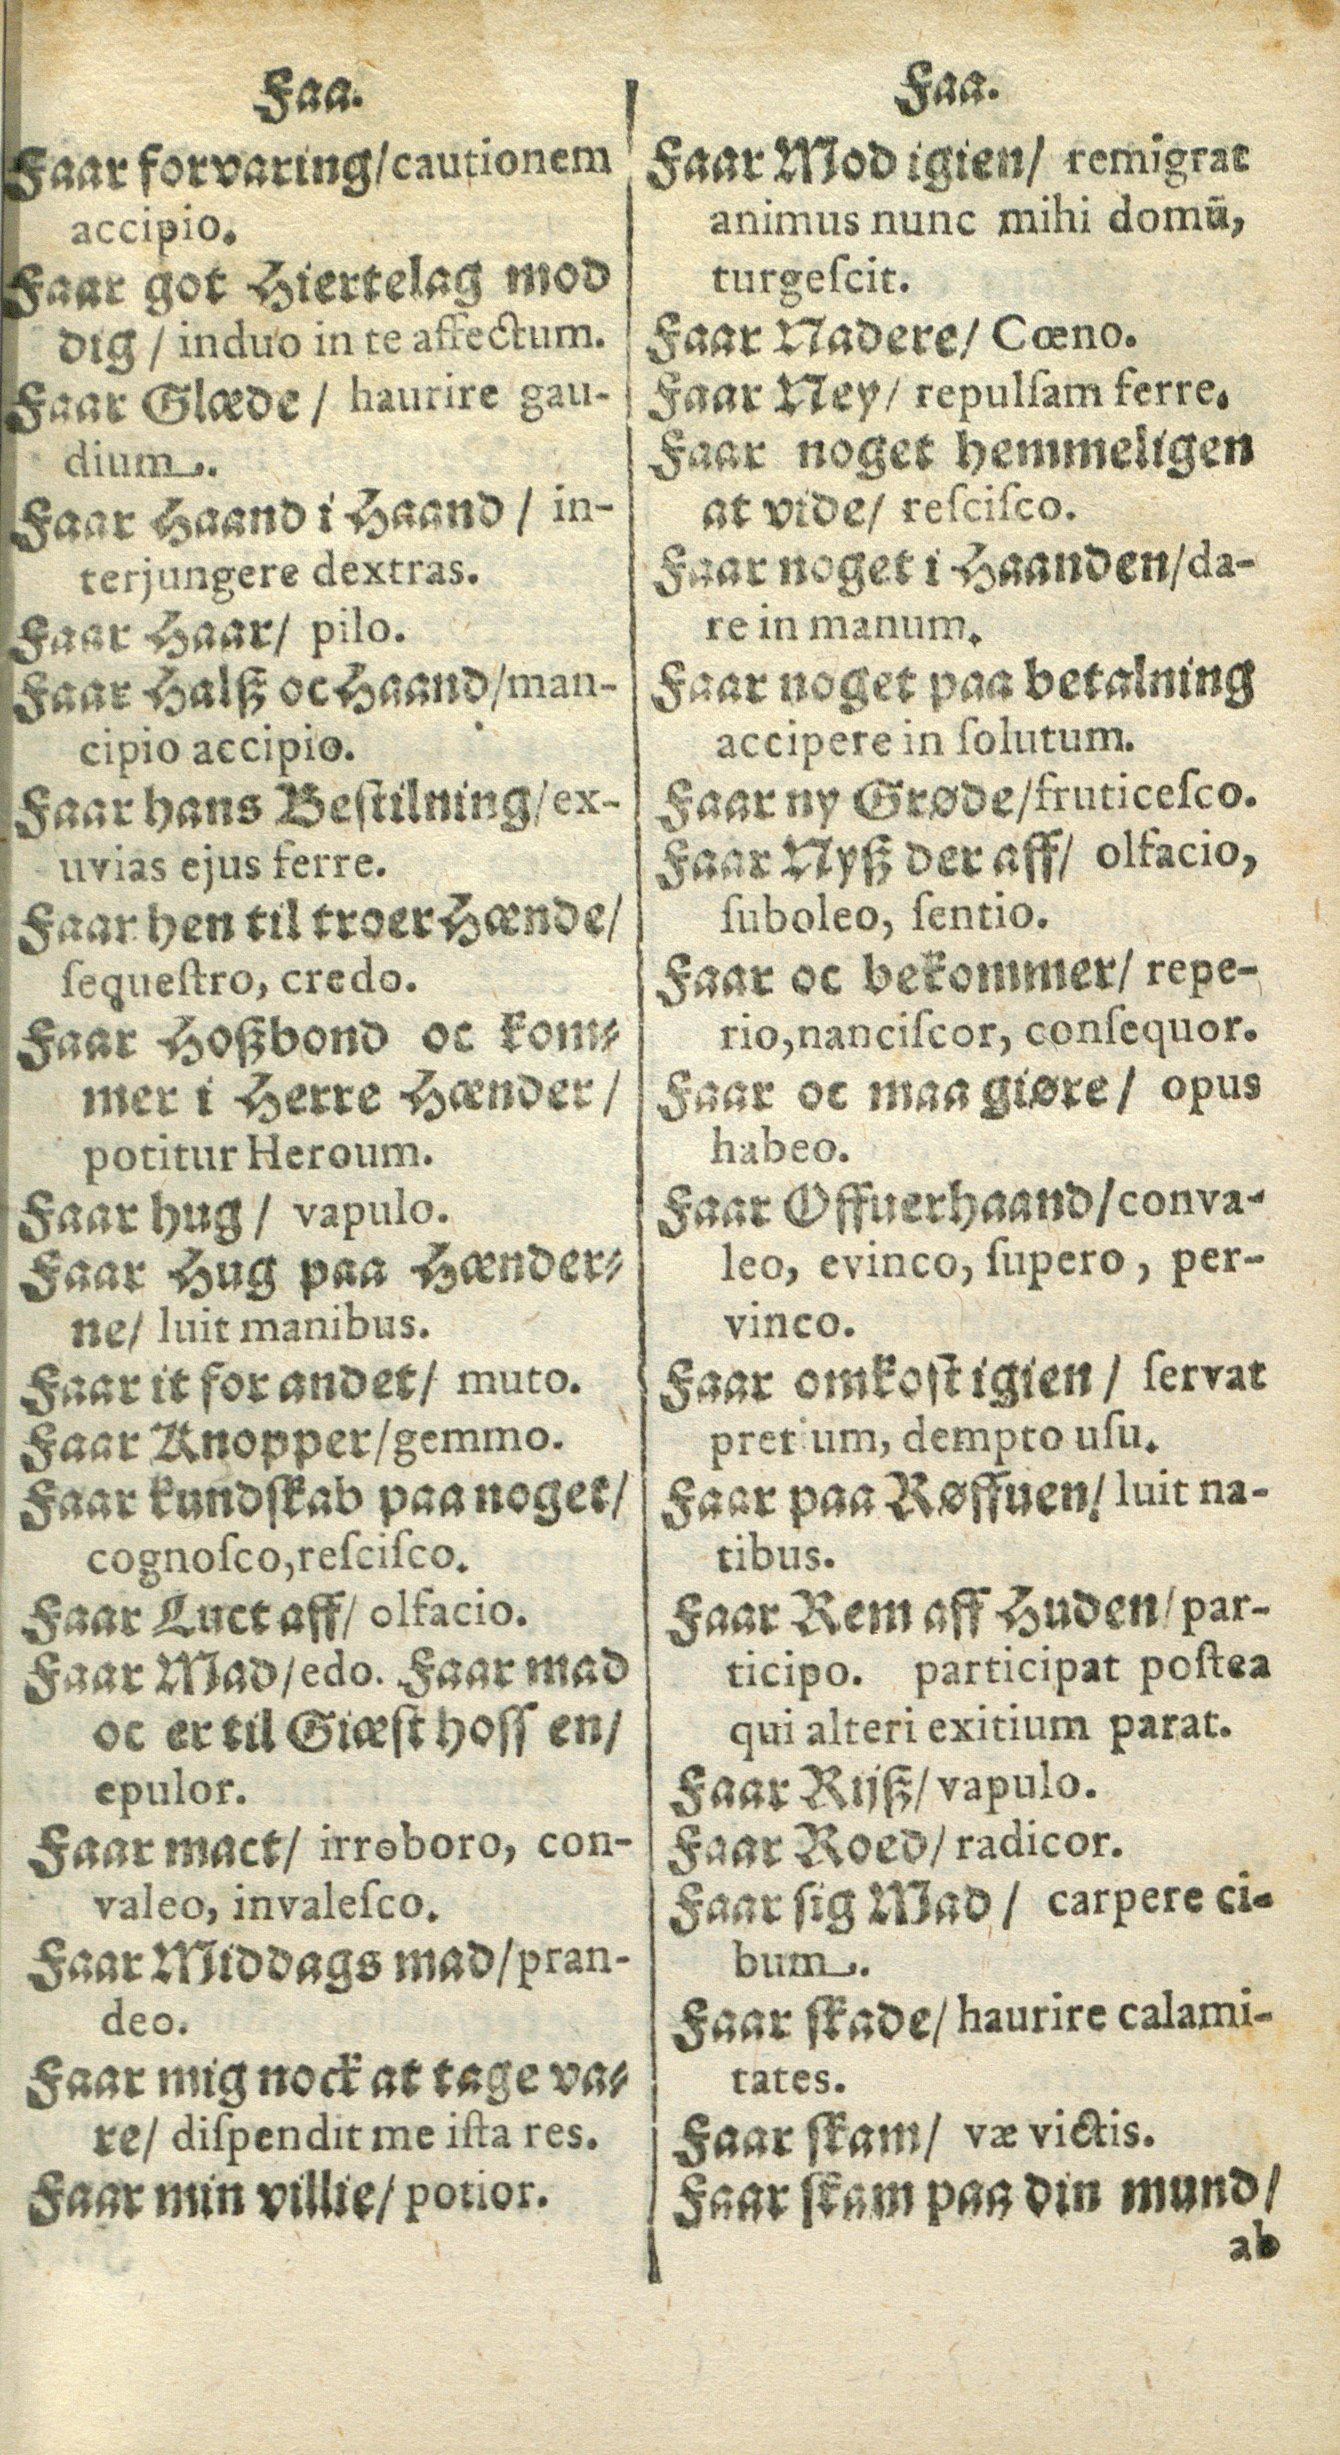 Faa.
Faar forvaring/cautionem
accipio.
Faar got Hiertelag mod
dig / induo in te affectum.
Faar Glæde / haurire gau-
dium.
Faar Haand i Haand / in-
terjungere dextras.
Faar Haar/ pilo.
Faar Halß oc Haand/man-
cipio accipio.
Faar hans Beſtilning/ex-
uvias ejus ferre.
Faar hen til troer Hænde/
ſequeſtro, credo.
Faar Hoßbond oc kom-
mer i Herre Hænder/
potitur Heroum.
Faar hug / vapulo.
Faar Hug paa Hænder-
ne/ luit manibus.
Faar it for andet/ muto.
Faar Knopper/gemmo.
Faar kundſkab paa noget/
cognoſco,reſciſco.
Faar Luct aff/ olfacio.
Faar Mad/edo. Faar mad
oc er til Giæſt hoſſ en/
epulor.
Faar mact/ irroboro, con-
valeo, invaleſco.
Faar Middags mad/pran-
deo.
Faar mig nock at tage va-
re/ diſpendit me iſta res.
Faar min villie/ potior.
Faa.
Faar Mod igien/ remigrat
animus nunc mihi domū,
turgeſcit.
Faar Nadere/ Cœno.
Faar Ney/ repulſam ferre.
Faar noget hemmeligen
at vide/ reſciſco.
Faar noget i Haanden/da-
re in manum.
Faar noget paa betalning
accipere in ſolutum.
Faar ny Grøde/fruticeſco.
Faar Nyß der aff/ olfacio,
ſuboleo, ſentio.
Faar oc bekommer/ repe-
rio,nanciſcor, conſequor.
Faar oc maa giøre/ opus
habeo.
Faar Offuerhaand/conva-
leo, evinco, ſupero, per-
vinco.
Faar omkoſt igien / ſervat
pretium, dempto uſu.
Faar paa Røffuen/ luit na-
tibus.
Faar Rem aff Huden/par-
ticipo. participat poſtea
qui alteri exitium parat.
Faar Rijß/ vapulo.
Faar Roed/ radicor.
Faar ſig Mad / carpere ci-
bum.
Faar ſkade/ haurire calami-
tates.
Faar ſkam/ væ victis.
Faar ſkam paa din mund/
ab